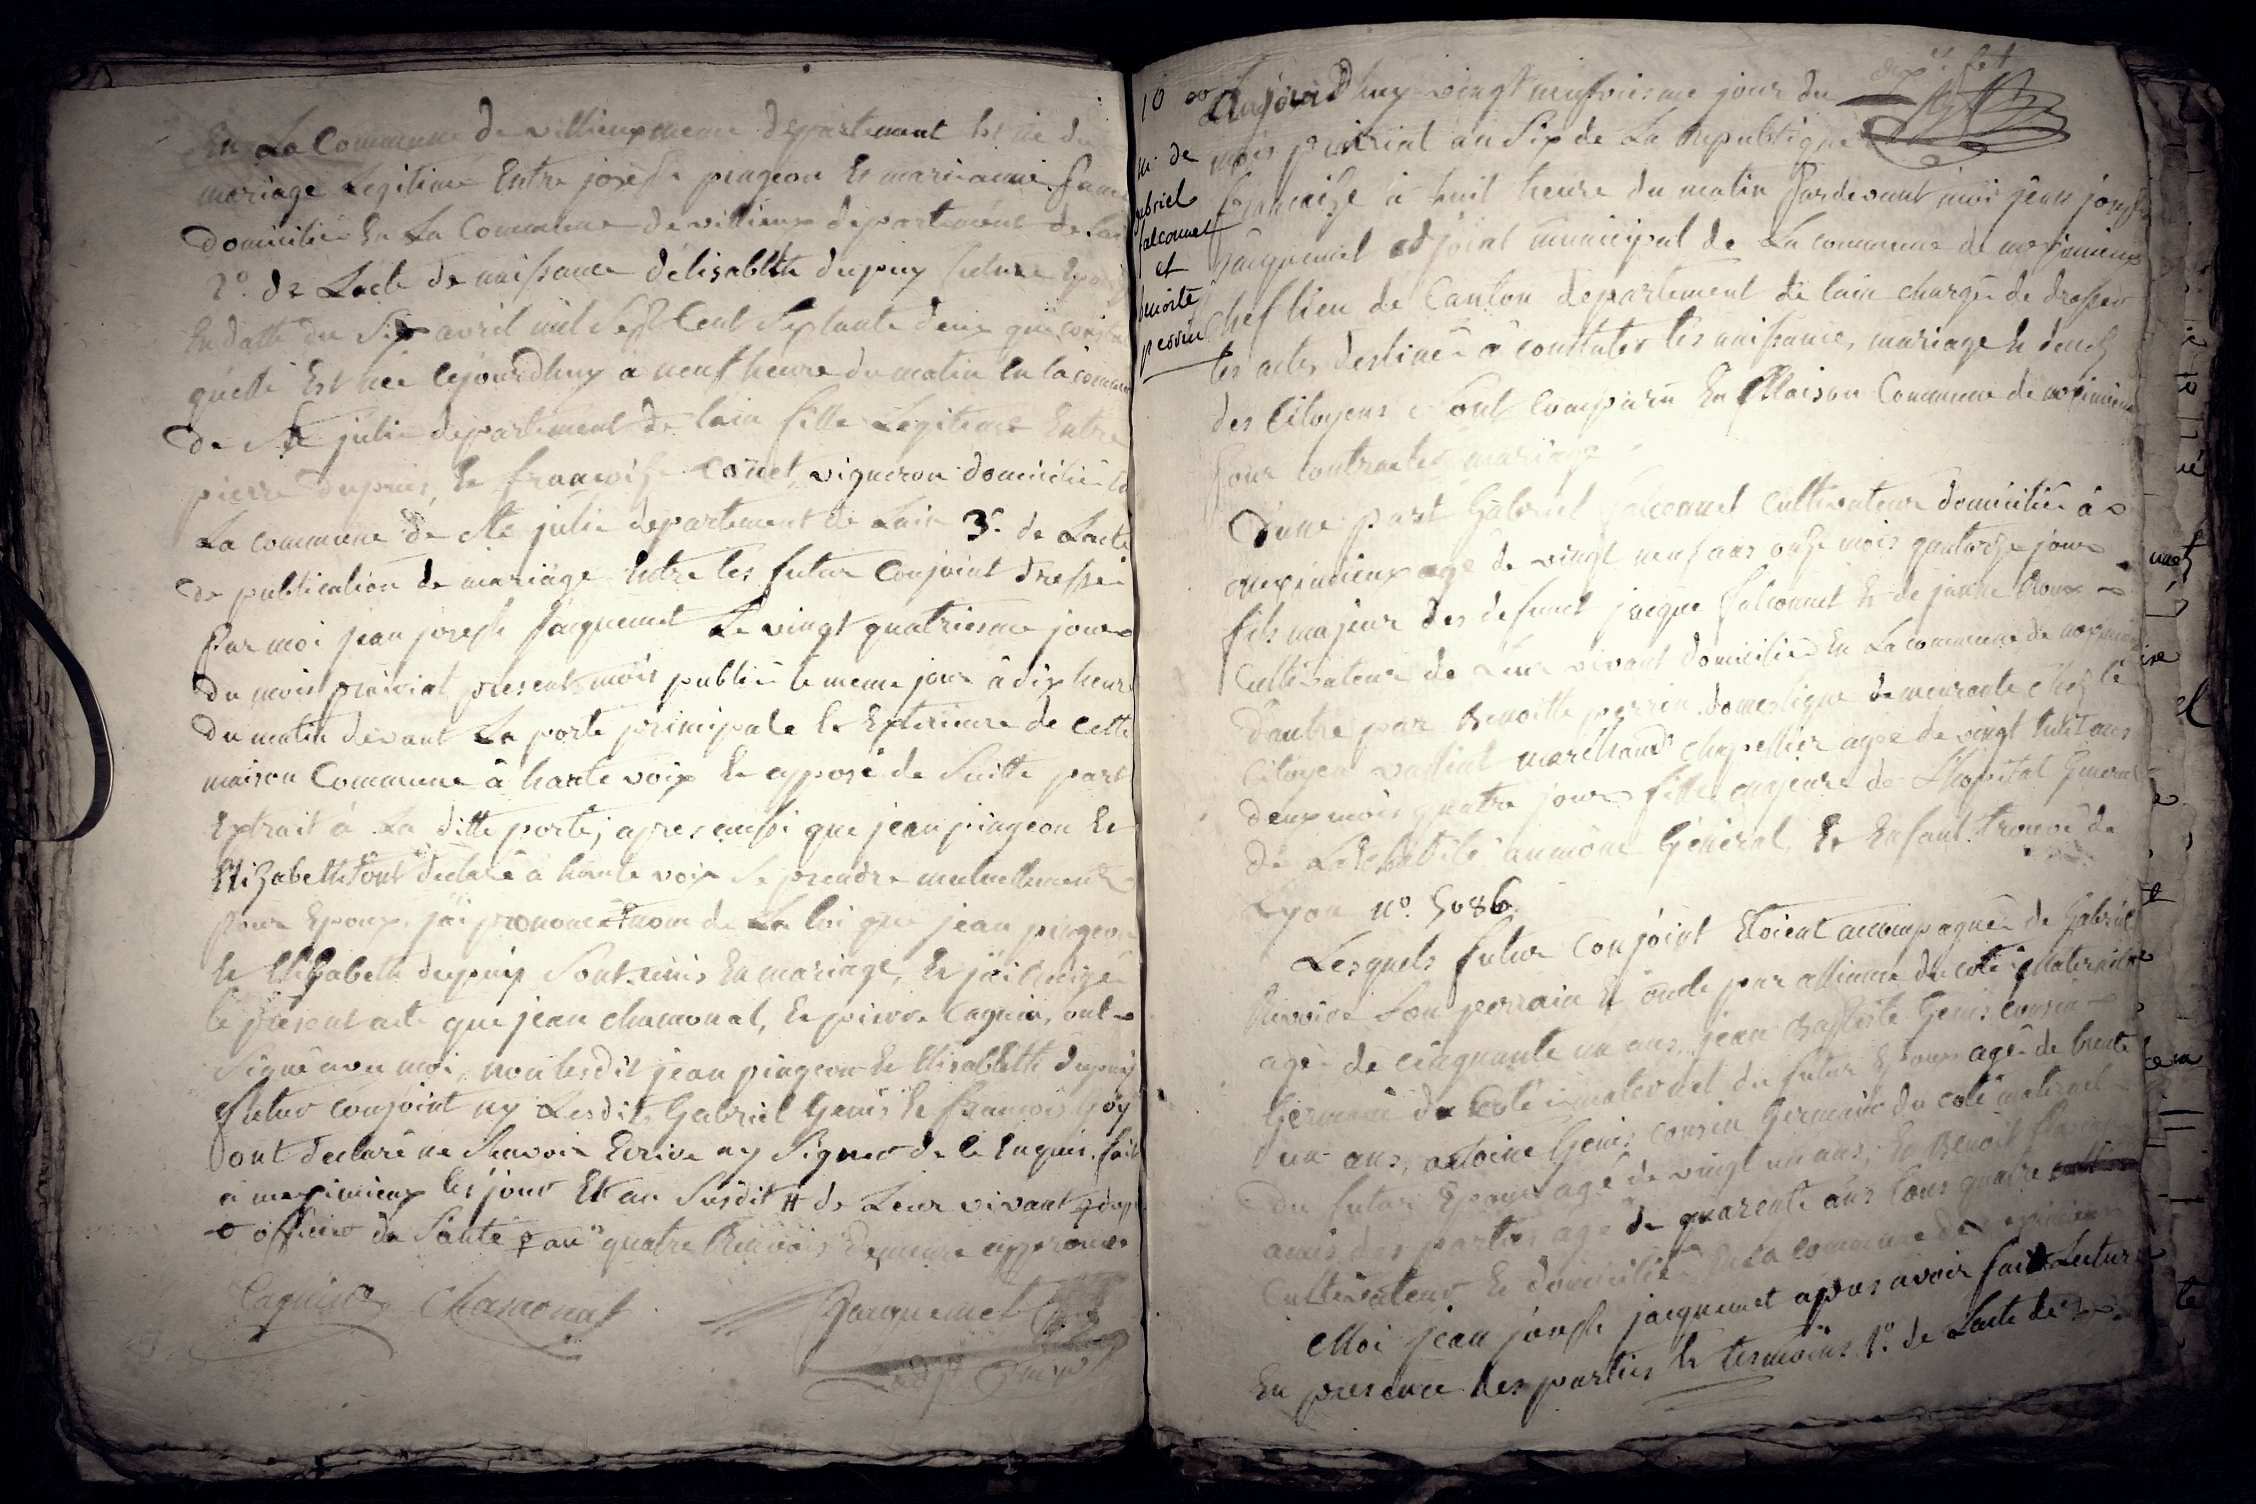 En La Commune de villieux meme departement Et né du
mariage Legitime Entre joseph pingeon Et marie anne
domicilié En La Commune de villieux departement de Lain
2o. de Lacte de naissance délisabeth dupuy future Epouse
En datte du Six avril mil Sept Cent Septante deux qui
quelle Est née cejourdhuy a neuf heure du matin En la commune
de Ste julie departement de lain fille Legitime Entre
pierre dupuis, Et francoise vigneron domicilié En
La commune de Ste julie departement de Lain 3o. de Lacte
de publication de mariage Entre les futur Conjoint dressé
Par moi jean joseph jacquemet Le vingt quatriesme jour
du mois prairial present mois publié le meme jour à dix heure
du matin devant La porte principale Et Exterieure de Cette
maison Commune â haute voix Et apposé de Suitte par
Extrait à La ditte porte; apres aussi que jean pingeon Et
Elizabeth ont declaré a haute voix Se prendre mutuellement
pour Epoux, jai prononcé nom de La loi que jean pingeon
Et Elizabeth dupuy Sont unis En mariage, Et jai redigé
le présent acte que jean chamonal, Et pierre Caguin, ont
Signé avec moi, non lesdit jean pingeon Et Elisabeth dupuy
futur conjoint ny Lesdits Gabriel Genis Et francois goy
ont declaré ne Savoir Ecrire ny Signer de ce Enquis, fait
a meximieux les jour Et an Susdit # de Leur vivant
officier de Santé quatre Renvois approuvé
Chamonal Jacquemet
10
m. de
gabriel
falconnet
et
benoite
perrin
Aujourdhuy vingt neufviesme jour du
mois prairial an Six de La Republique
francaise à huit heure du matin Pardevant moi jean joseph
jacquemet adjoint municipal de La commune de meximieux
Chef lieu de Canton departement de lain chargé de dresser
les actes destiné â constater les naissance, mariage Et decès
des Citoyens Sont comparu En Maison Commune de meximieux
pour contracter mariage
Dune part Gabriel falconnet Cultivateur domicilié à
meximieux agé de vingt neuf ans onze mois quatorze jour
fils majeur des defunct jacque falconnet Et de jeanne Roux
Cultivateur de Leur vivant domicilié En La commune de meximieux
dautre par Benoitte perrin domestique demeurante chez le
Citoyen marchand Chapellier agée de vingt huit ans
deux mois quatre jour fille majeure de Lhopital General
de La Charité aumône Général, Et Enfant trouvé de
Lyon no. 5086.
Lesquels futur conjoint Etoient accompagné de Gabriel
Son perrain Et oncle par alliance du coté maternel
agé de cinquante un ans, jean Baptiste Genis cousin
Germain du coté maternel du futur Epoux agé de trente
un ans, antoine Genis cousin Germain du coté maternel
du futur Epoux agé de vingt un ans, Et Benoit
amis des parties agé de quarente ans tous quatre
Cultivateur Et domicilié En La commune de meximieux
Moi jean joseph jacquemet apres avoir fait Lecture
En presence des parties Et tesmoins 1o. de Lacte de